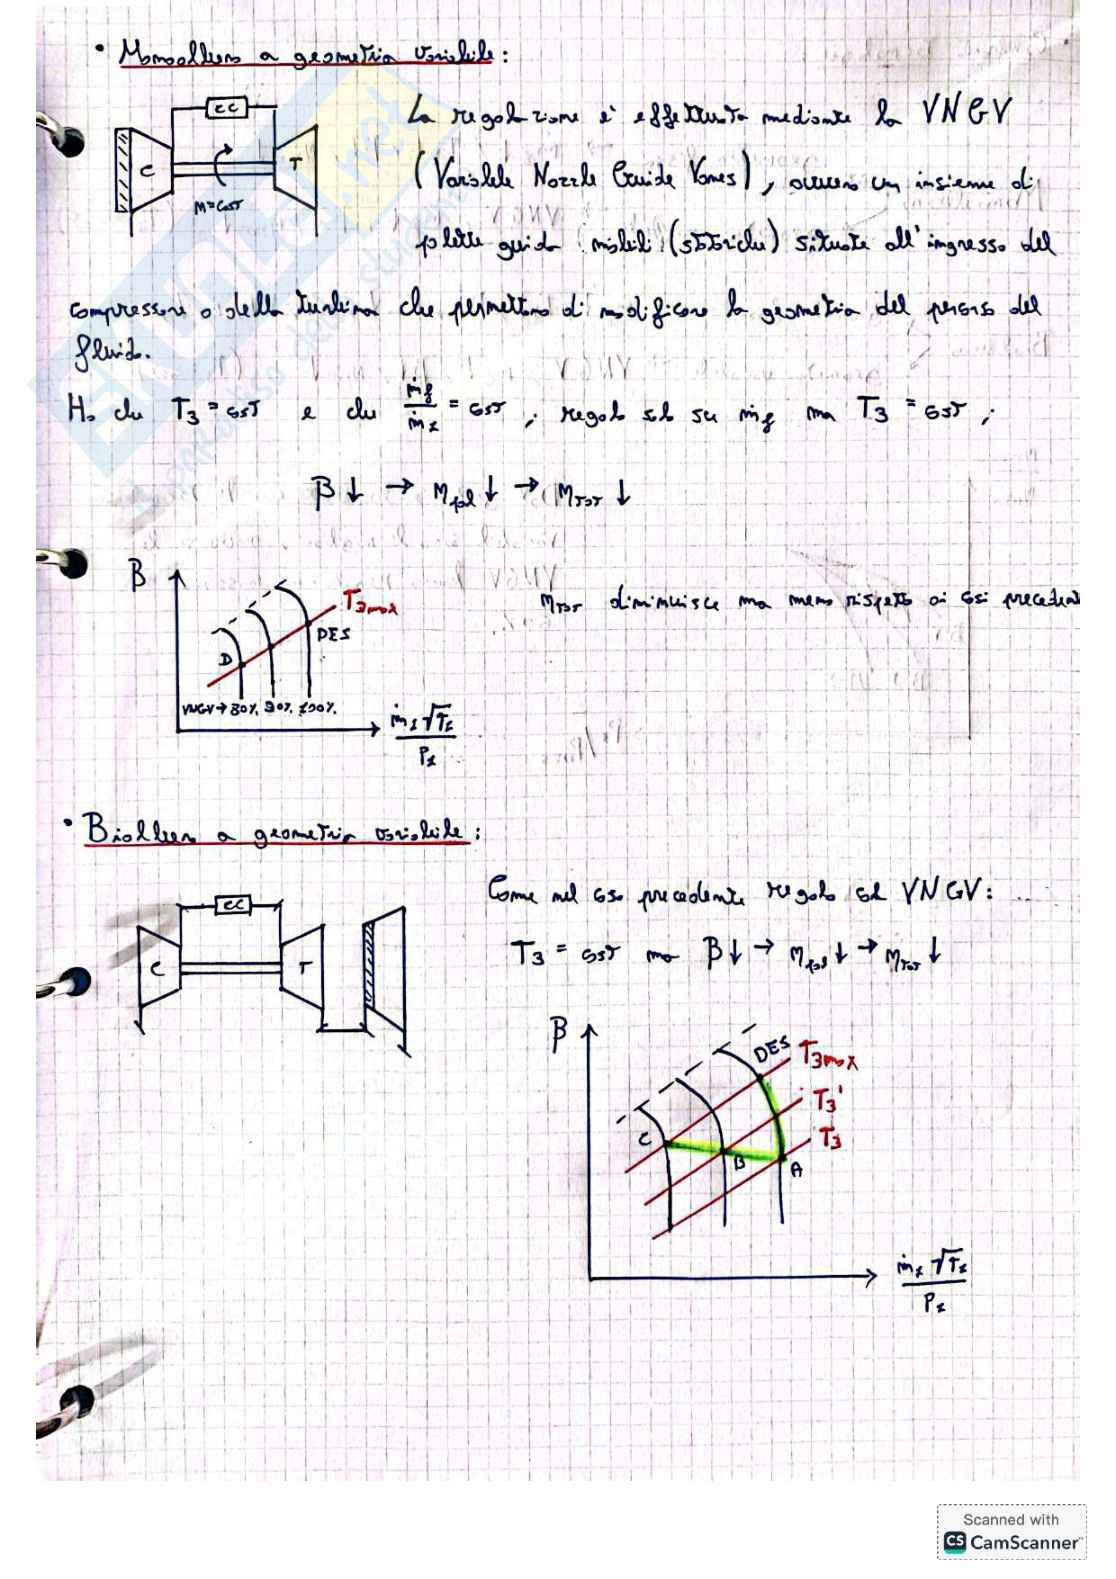 • Monoalbero a geometria variabile:
CC
C
T
n=cost
La regolazione è effettuata mediante la VNGV
(Variable Nozzle Guide Vanes), ovvero un insieme di
palette guida mobili (statoriche) situate all'ingresso del
compressore o della turbina che permettono di modificare la geometria del percorso del
fluido.
Ho che T3 = cost e che ṁf/ṁ1 = cost ; regolo solo su ṁf ma T3 = cost ;
β ↓ → ηgl ↓ → ηTOT ↓
β
T3max
DES
D
VNGV → 80% 90% 100%
ṁ1 √T1 / P1
ηTOT diminuisce ma meno rispetto ai casi precedenti
• Bialbero a geometria variabile:
CC
C
T
Come nel caso precedente regolo col VNGV:
T3 = cost ma β ↓ → ηgl ↓ → ηTOT ↓
β
DES
T3max
T3'
T3
C
B
A
ṁ1 √T1 / P1
Scanned with
CS CamScanner